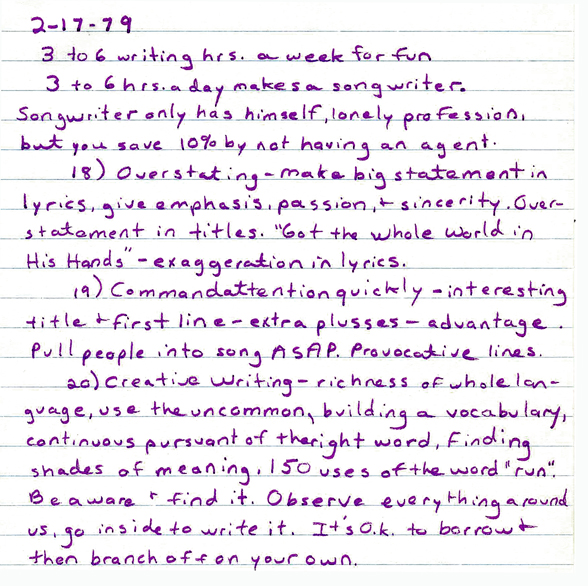 2-17-79
3 to 6 writing hrs. a week for fun
3 to 6 hrs. a day makes a songwriter.
Songwriter only has himself, lonely profession,
but you save 10% by not having an agent.
18) Overstating - make big statement in
lyrics, give emphasis, passion, + sincerity. Over-
statement in titles. "Got the whole world in
His Hands" - exaggeration in lyrics.
19) Command attention quickly - interesting
title + first line - extra plusses - advantage.
Pull people into song ASAP. Provocative lines.
20) Creative Writing - richness of whole lan-
guage, use the uncommon, building a vocabulary,
continuous pursuant of the right word, Finding
shades of meaning, 150 uses of the word "run".
Be aware + find it. Observe everything around
us, go inside to write it. It's O.k. to borrow +
then branch off on your own.